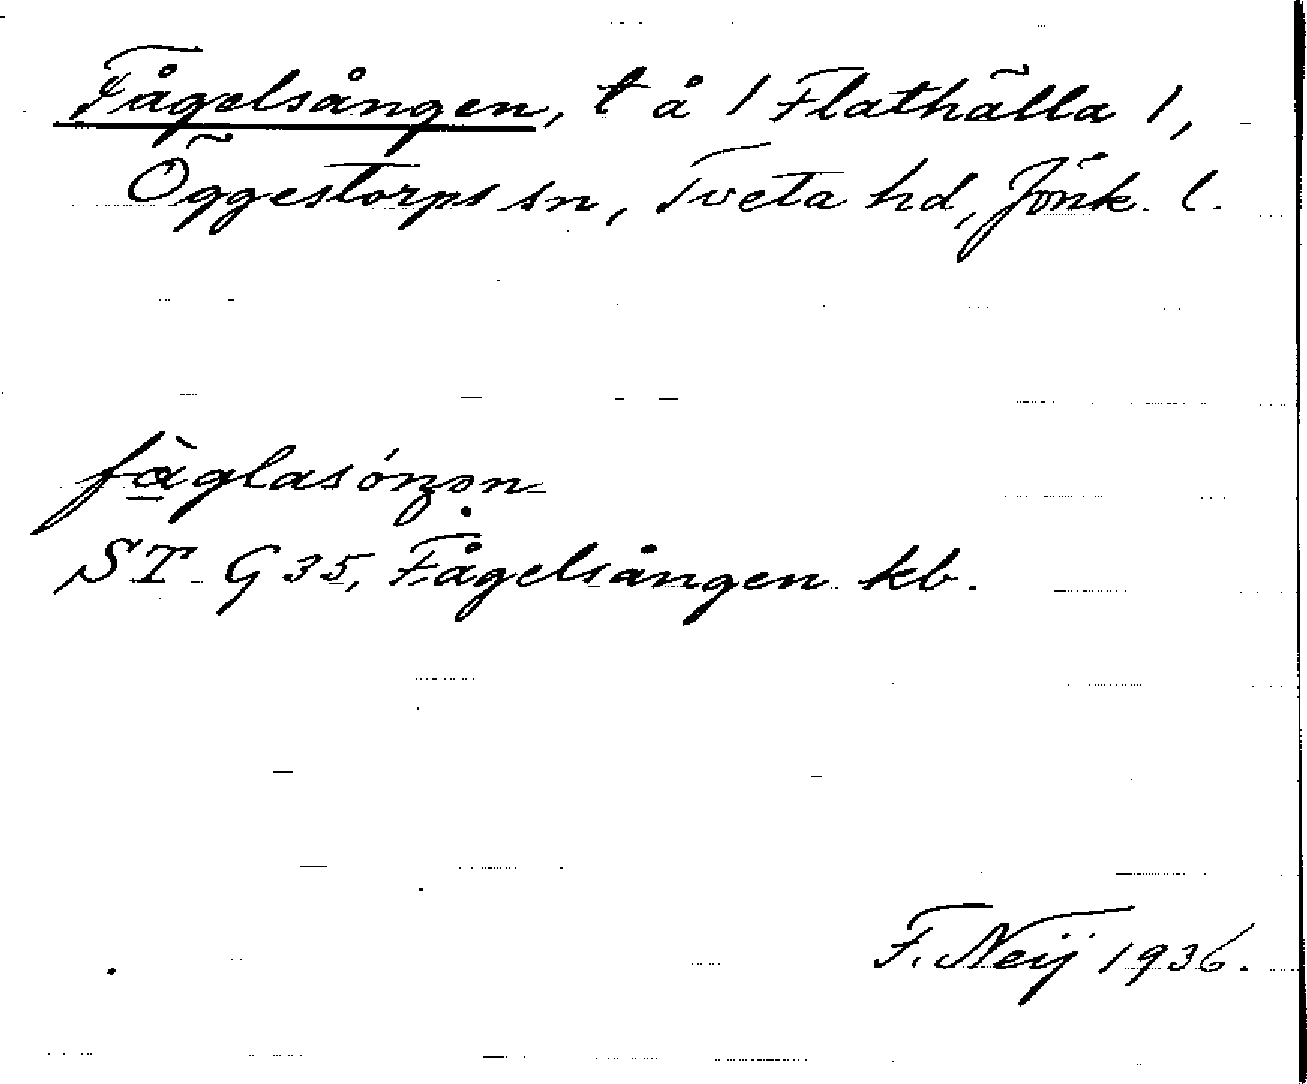 Fågelsången, t å / Flathälla /,
Öggestorps sn, Tveta hd, Jönk. l.
fàglasóŋən
ST G 35, Fågelsången kb.
F. Neij 1936.